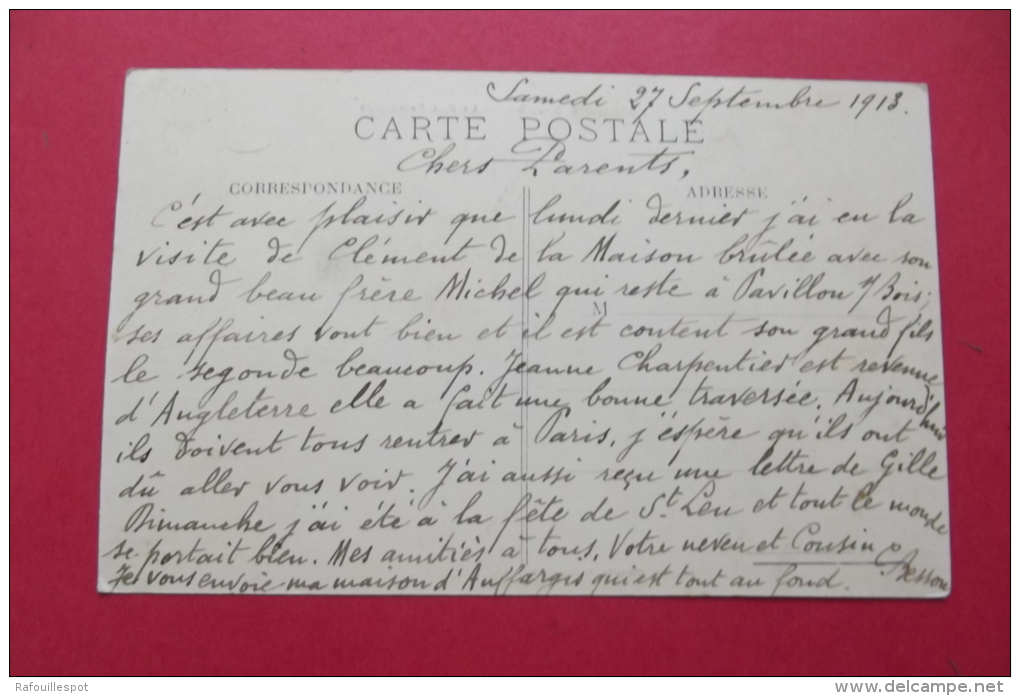 Samedi 27 Septembre 1913.
CARTE POSTALE
Chers Parents,
CORRESPONDANCE
ADRESSE
C'est avec plaisir que lundi dernier j'ai eu la
visite de Clément de la Maison brûlée avec son
grand beau frère Michel qui reste à Pavillon s/Bois;
M
ses affaires vont bien et il est content son grand fils
le segonde beaucoup. Jeanne Charpentier est revenue
d'Angleterre elle a fait une bonne traversée. Aujourd'hui
ils doivent tous rentrer à Paris, j'espère qu'ils ont
dû aller vous voir. J'ai aussi reçu une lettre de Gille
Dimanche j'ai été à la fête de St Leu et tout le monde
se portait bien. Mes amitiés à tous. Votre neveu et Cousin Besson
Je vous envoie ma maison d'Auffargis qui est tout au fond.
Rafouillespot
www.delcampe.net